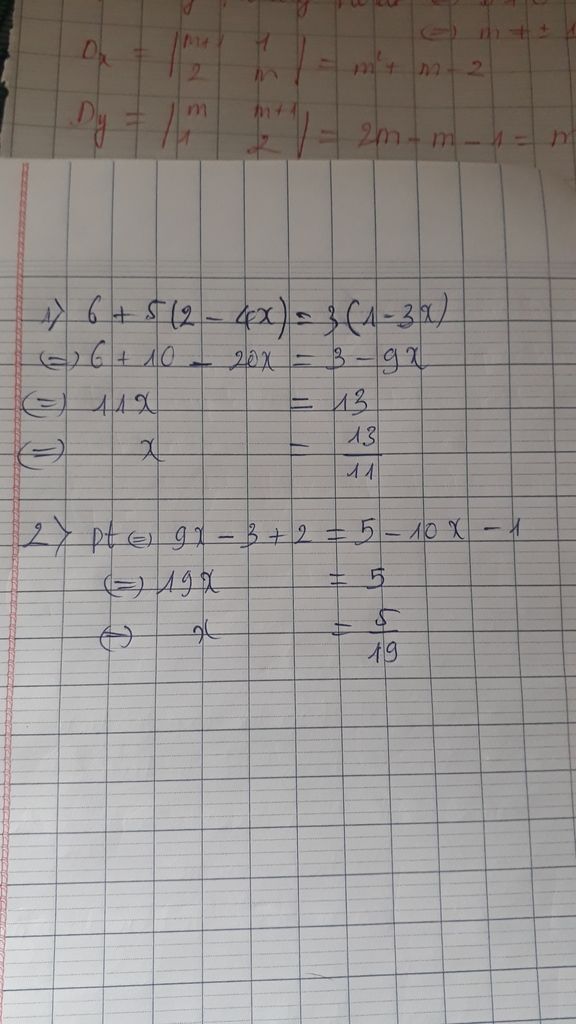 (=) m ≠ ± 1
Dx = |m+1 1
2 m| = m² + m - 2
Dy = |m m+1
1 2| = 2m - m - 1 = m
1) 6 + 5(2 - 4x) = 3(1 - 3x)
(=) 6 + 10 - 20x = 3 - 9x
(=) 11x = 13
(=) x = 13/11
2) pt (=) 9x - 3 + 2 = 5 - 10x - 1
(=) 19x = 5
(=) x = 5/19